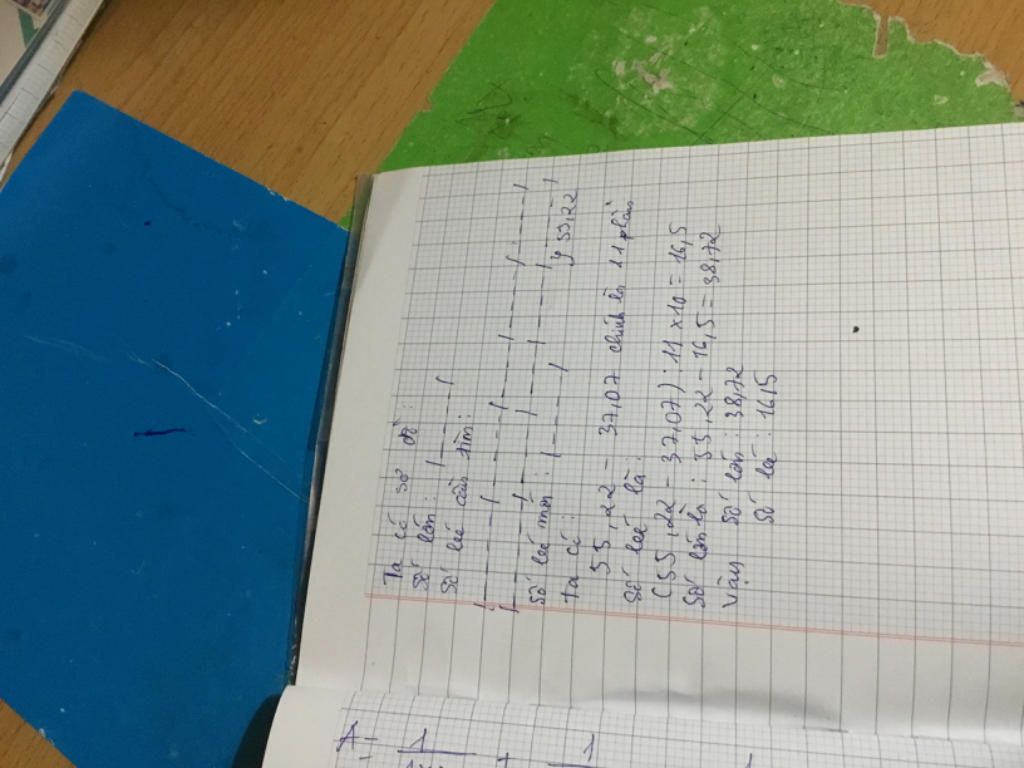 Ta có sơ đồ:
Số lớn: |-----|
Số bé cần tìm:
|-----|-----|-----|-----|-----|
|-----|-----|-----|-----| } 55,22
Số bé mới: |-----|
Ta có:
55,22 - 37,07 chính là 11 phần
Số bé là:
(55,22 - 37,07) : 11 x 10 = 16,5
Số lớn là: 55,22 - 16,5 = 38,72
Vậy Số lớn: 38,72
Số bé: 16,5